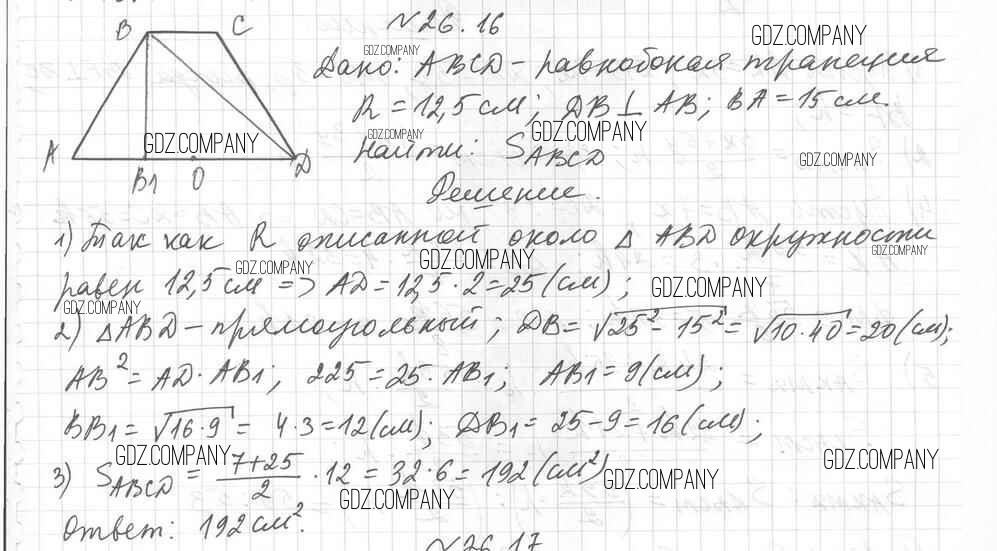 N26.16
B C
GDZ.COMPANY
GDZ.COMPANY
Дано: ABCD – равнобокая трапеция
R = 12,5 см; DB ⊥ AB; BA = 15 см.
GDZ.COMPANY
GDZ.COMPANY
GDZ.COMPANY
Найти: S_ABCD
GDZ.COMPANY
A B1 O D
Решение.
1) Так как R описанной около △ ABD окружности
GDZ.COMPANY
GDZ.COMPANY
GDZ.COMPANY
равен 12,5 см => AD = 12,5 · 2 = 25 (см);
GDZ.COMPANY
GDZ.COMPANY
2) △ABD – прямоугольный; DB = √25² – 15² = √10·40 = 20 (см);
AB² = AD · AB1; 225 = 25 · AB1; AB1 = 9 (см);
BB1 = √16·9 = 4·3 = 12 (см); DB1 = 25 – 9 = 16 (см);
GDZ.COMPANY
GDZ.COMPANY
3) S_ABCD = 7+25/2 · 12 = 32·6 = 192 (см²)
GDZ.COMPANY
GDZ.COMPANY
Ответ: 192 см².
N26.17